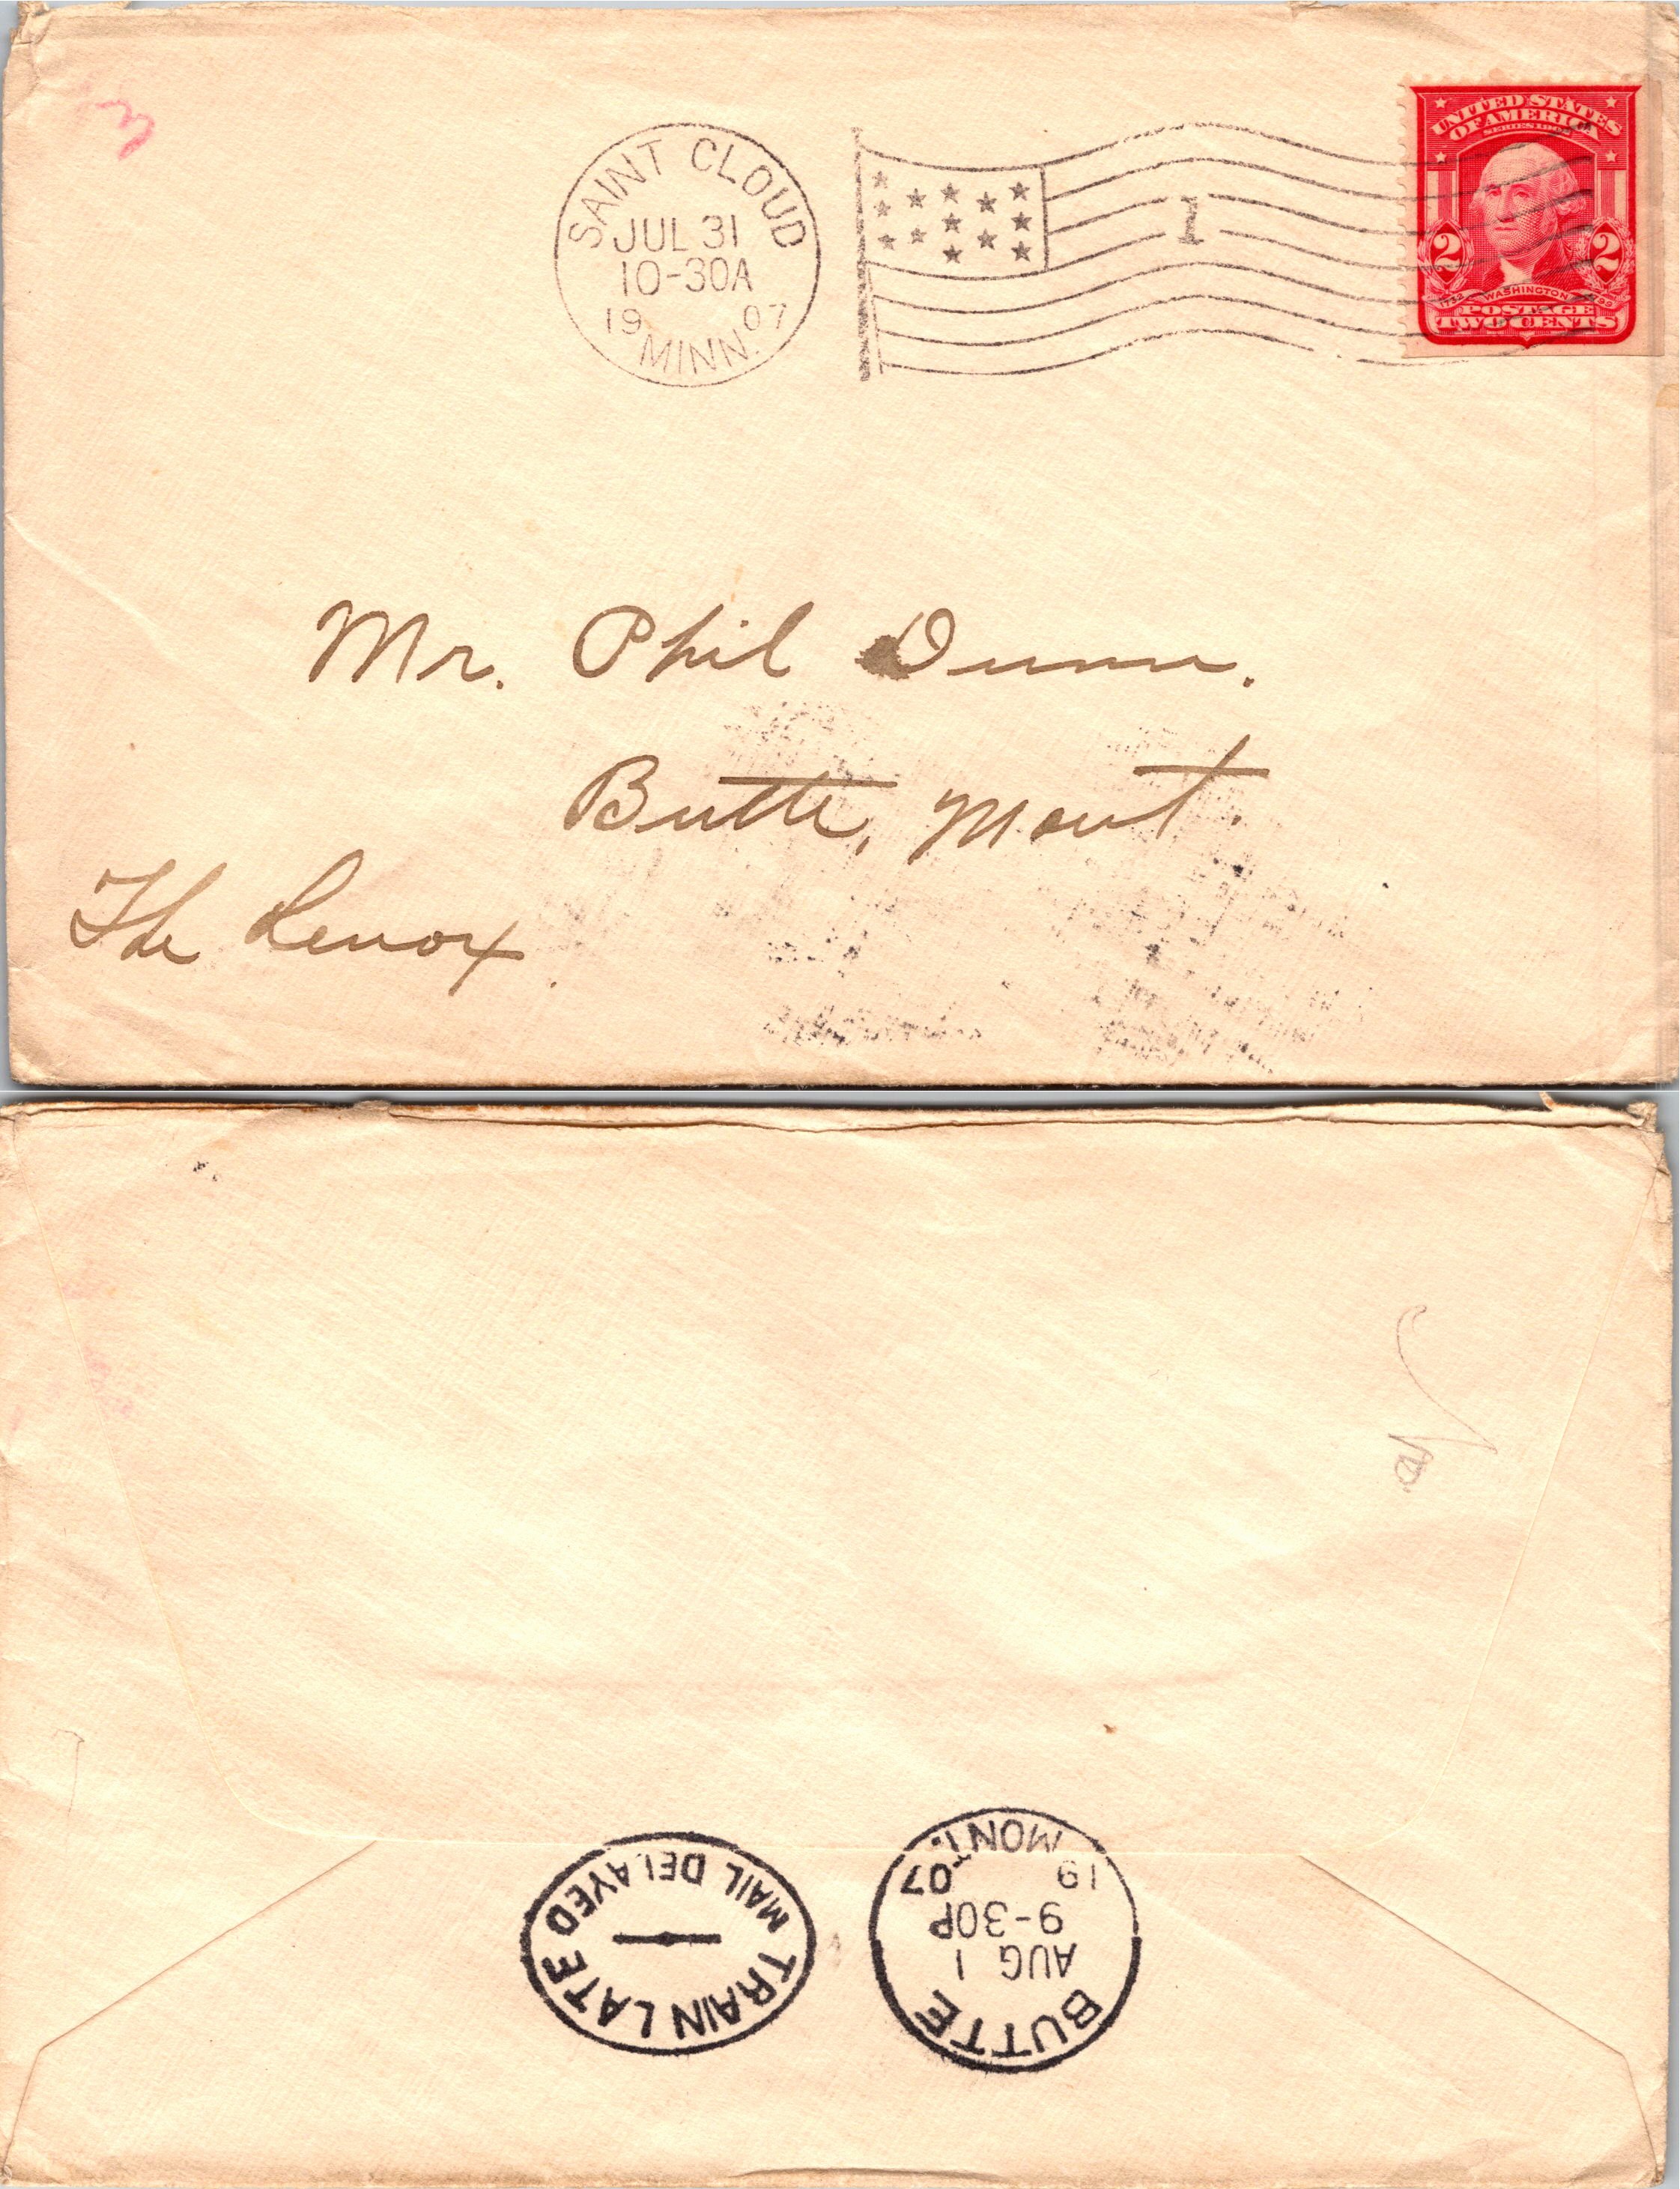 SAINT CLOUD
JUL 31
10-30A
19 07
MINN.
1
UNITED STATES
OF AMERICA
SERIES 1902
2 2
1732 WASHINGTON 1799
POSTAGE
TWO CENTS
Mr. Phil Dunn.
Butte, Mont.
The Lenox
TRAIN LATE
MAIL DELAYED
BUTTE
AUG 1
9-30P
19 07
MONT.